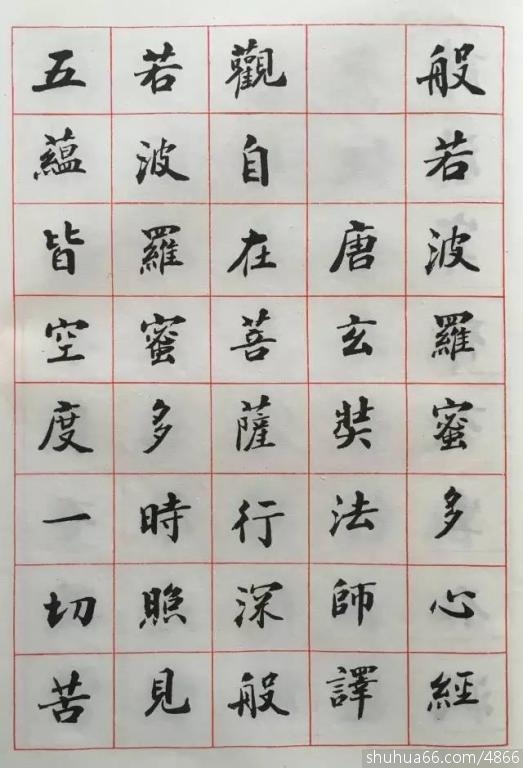 般若波羅蜜多心經
唐玄奘法師譯
觀自在菩薩行深般
若波羅蜜多時照見
五蘊皆空度一切苦
shuhua66.com/4866